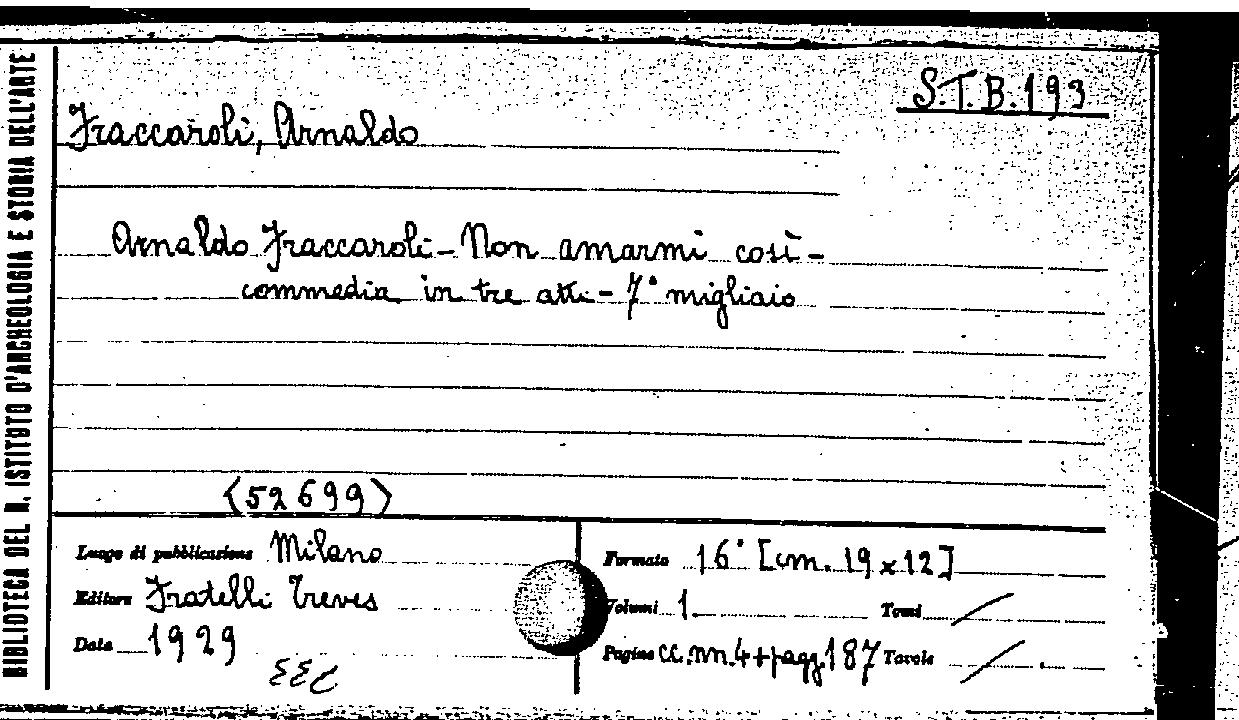 BIBLIOTECA DEL R. ISTITUTO D'ARCHEOLOGIA E STORIA DELL'ARTE
S.T.B.193
Fraccaroli, Arnaldo
Arnaldo Fraccaroli - Non amarmi così -
commedia in tre atti - 7° migliaio
<52699>
Luogo di pubblicazione Milano
Editore Fratelli Treves
Data 1929
Formato 16° [cm. 19 x 12]
Volumi 1 Tomi /
Pagine cc.nn.4+pagg.187 Tavole /